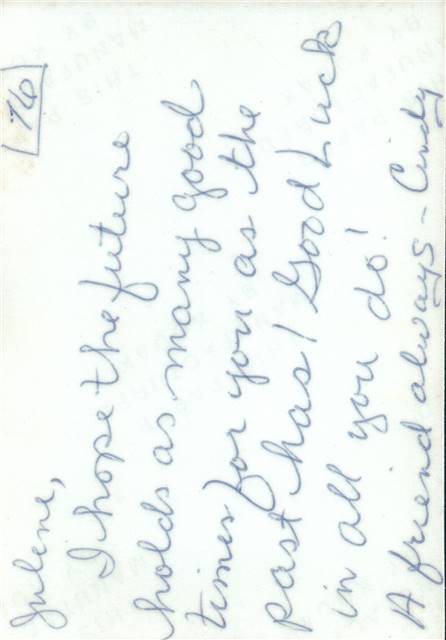 Julene,
76
I hope the future
holds as many good
times for you as the
past has! Good Luck
in all you do!
A friend always - Cindy